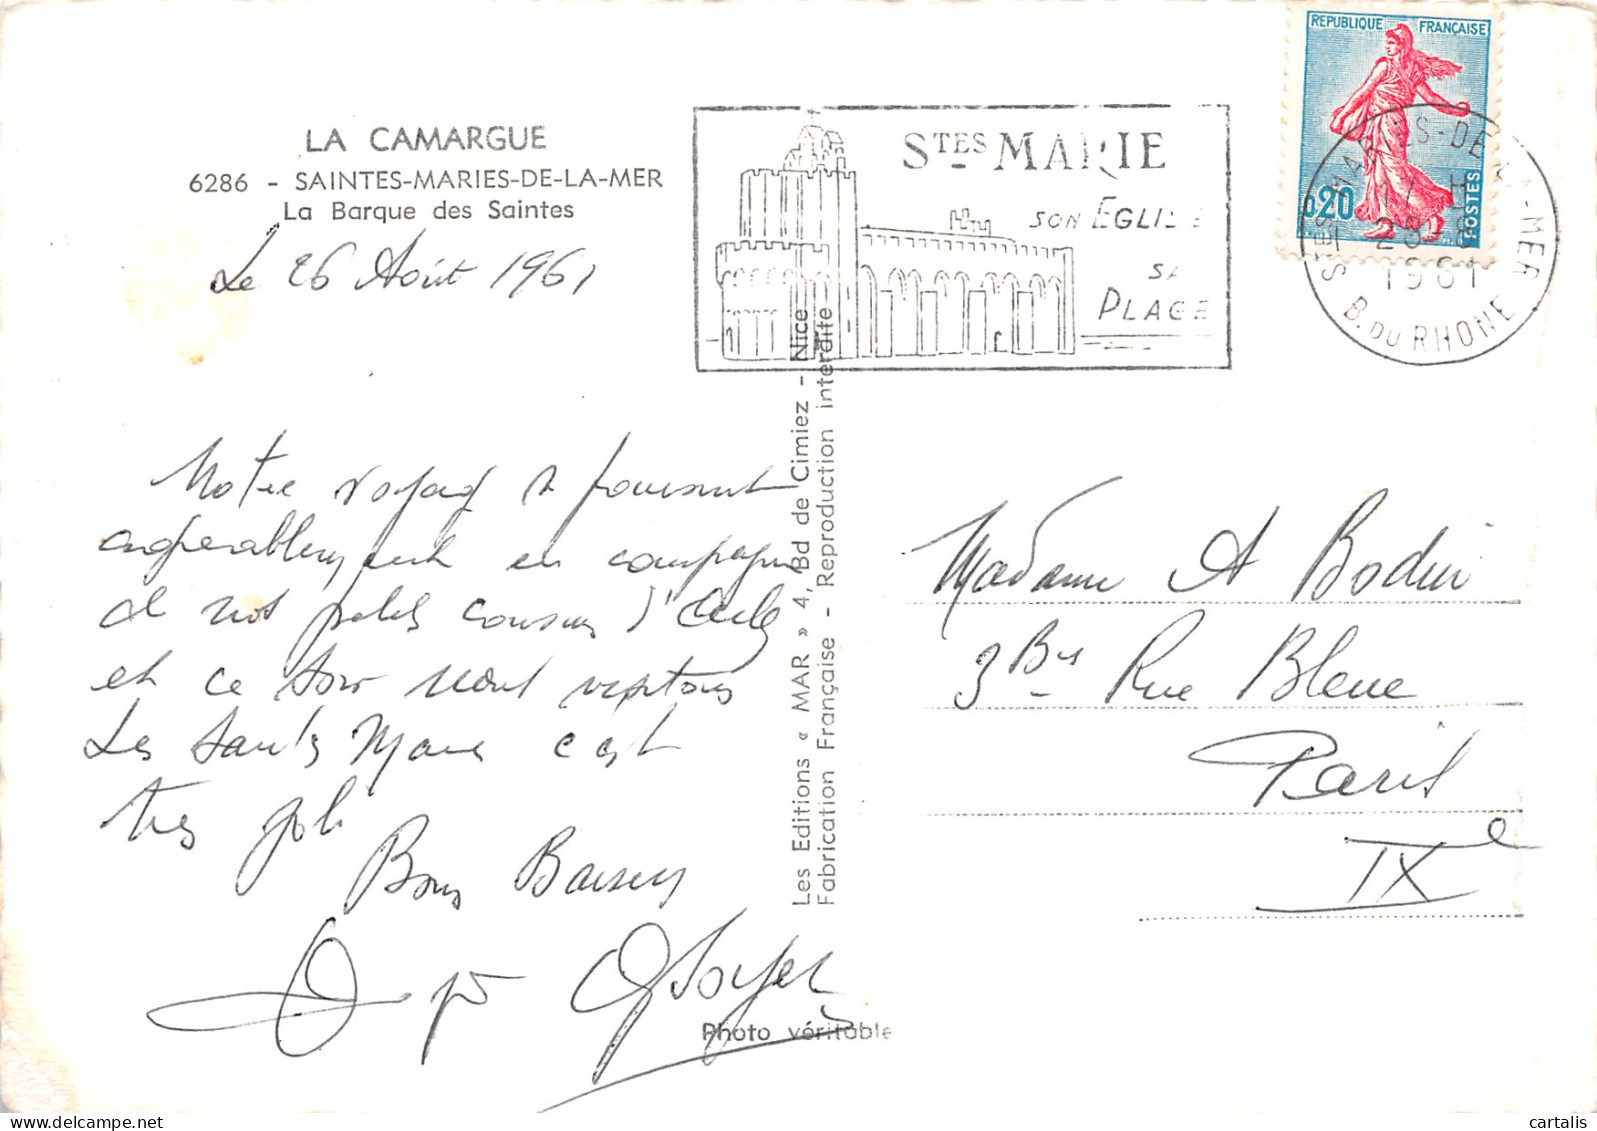 REPUBLIQUE FRANÇAISE
0,20
POSTES
LA CAMARGUE
6286 - SAINTES-MARIES-DE-LA-MER
La Barque des Saintes
Le 26 Août 1961
STES MARIE
SON EGLISE
SA
PLAGE
STES MARIES-DE-LA-MER
17 H
28-8
1961
B. DU RHONE
Notre voyage se poursuit
agréablement en compagnie
de nos petits cousins
et ce soir nous visitons
Les Saintes Maries c'est
très joli
Bons Baisers
Madame A Bodin
3 Bis Rue Bleue
Paris
IXe
Les Editions « MAR » 4, Bd de Cimiez - Nice
Fabrication Française - Reproduction interdite
Photo véritable
cartalis